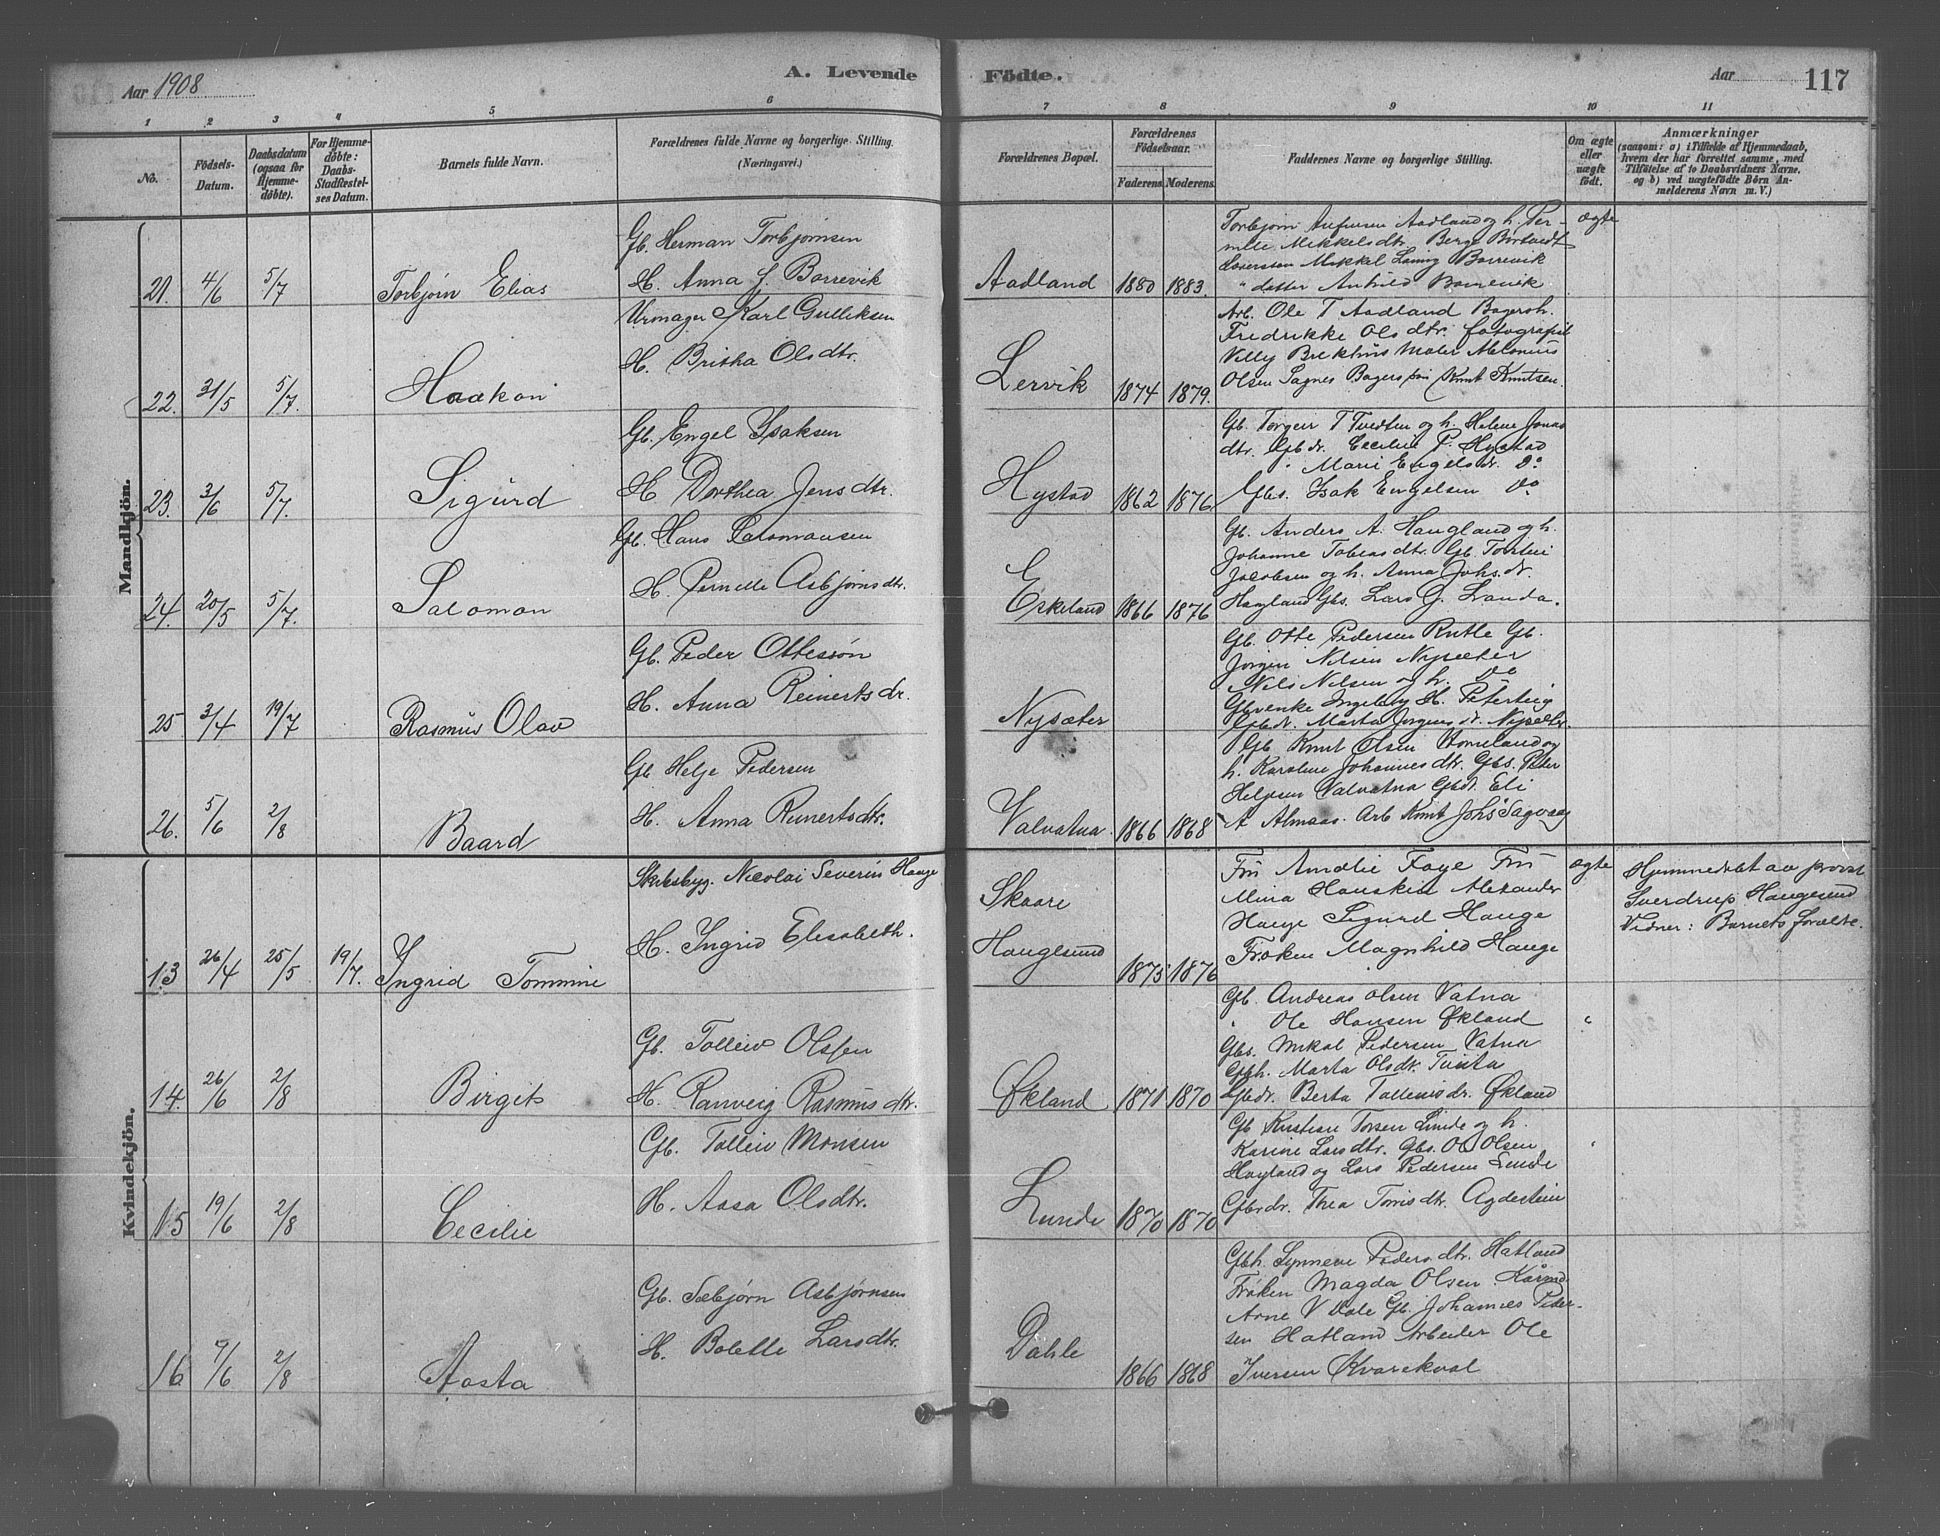 Aar 1908
A. Levende
Födte.
Aar
117
1 2 3 4 5 6 7 8 9 10 11
No.
Födsels-Datum.
Daabsdatum (ogsaa for Hjemmedöbte).
For Hjemmedöbte: Daabs-Stadfæstelses Datum.
Barnets fulde Navn.
Forældrenes fulde Navne og borgerlige Stilling. (Næringsvei.)
Forældrenes Bopæl.
Forældrenes Födselsaar.
Faderens Moderens
Faddernes Navne og borgerlige Stilling.
Om ægte eller uægte födt.
Anmærkninger
(saasom: a) i Tilfælde af Hjemmedaab, hvem der har forrettet samme, med Tilföielse af to Daabsvidners Navne. og b) ved uægtefödte Börn Anmelderens Navn m. V.)
Mandkjön.
Gb. Herman Torbjørnsen
21. 4/6 5/7 Torbjørn Elias
H. Anna J. Borrevik
Aadland 1880 1883.
Torbjørn Aadland og h. Per-
nille Mikkelsdtr. Berge
Mikkel Borrevik
datter Borrevik
ægte
Urmager Karl Gulliksen
H. Britha Olsdtr.
22. 31/5 5/7. Haakon
Lervik 1874 1879.
Arb. Ole T Aadland Bagersh.
Fredrikke Olsdtr. fotografist
Villy Brekhus Maler
Olsen Sagnes Knut Knutsen.
Gb. Engel Isaksen
23. 3/6 5/7. Sigurd
H Dorthea Jensdtr.
Hystad 1862 1876
Gb. Torgeir T Tvedten og h. Helene Jonas
dtr. Gbdr. Cecilie P. Hystad
" Marie Engelsdr. Do
Gbs. Isak Engelsen Do
Gb. Hans Salomonsen
24. 20/5 5/7. Salomon
H. Pernille Asbjørnsdtr.
Eskeland 1866 1876
Gb. Anders A. Haugland og h.
Johanne Tobiasdtr. Gb.
Jacobsen og h. Anna Johs.dr.
Gbs. Lars J. Landa.
Gb. Peder Ottesson
25 3/4 19/7 Rasmus Olav
H. Anna Reinertsdr.
Nysæter
Gb. Otte Pedersen Rutle Gb.
Jørgen Nilsen Nysæter
Nils Nilsen og h. Do
Gbdr. Marta Jørgensdr. Nysæter.
Gb Helje Pedersen
26. 5/6 2/8 Baard
H. Anna Reinertsdtr.
Valvatna. 1866 1868
Gb Knut Olsen og
h. Karoline Johannesdtr. Gbs. Peter
Helgesen Valvatna Gbdt. Eli
A Almaas. Arb Knut Johs Sagvaag
Kvindekjön.
Nicolai Severin Hauge
13 26/4 25/5 19/7. Ingrid Tommine
H. Ingrid Elisabeth.
Skaare
Haugesund
1875 1876
Fru Amalie Faye Fru
Mina Alexander
Hauge Sigurd Hauge
Frøken Magnhild Hauge
ægte
Hjemmedøbt av provst
Sverdrup Haugesund
Vidner: Barnets forældre.
Gb. Tolleiv Olsen
14. 26/6 2/8 Birgit
H. Ranveig Rasmusdtr.
Økland 1871 1870
Gb. Andreas Olsen Vatna
" Ole Hansen Økland
Gbs. Mikal Pedersen Vatna
Gbh. Marta Olsdtr.
Gbdr. Berta Tolleivsdr. Økland
Gb. Tolleiv Monsen
15 19/6 2/8 Cecilie
H. Aasa Olsdtr.
Lunde 1870 1870
Gb Kristian Torsen Lunde og h.
Karine Larsdtr. Gbs. O. Olsen
og Lars Pedersen Lunde
Gbrdr. Thea
Gb. Sæbjørn Asbjørnsen
16 9/6 2/8 Aasta
H. Bolette Larsdtr.
Dahle 1866 1868
Gbh. Synneve Pedersdtr. Hatland
Frøken Magda Olsen.
Arne V Dale Gb. Johannes Peder-
sen Hatland Arbeider Ole
Iversen